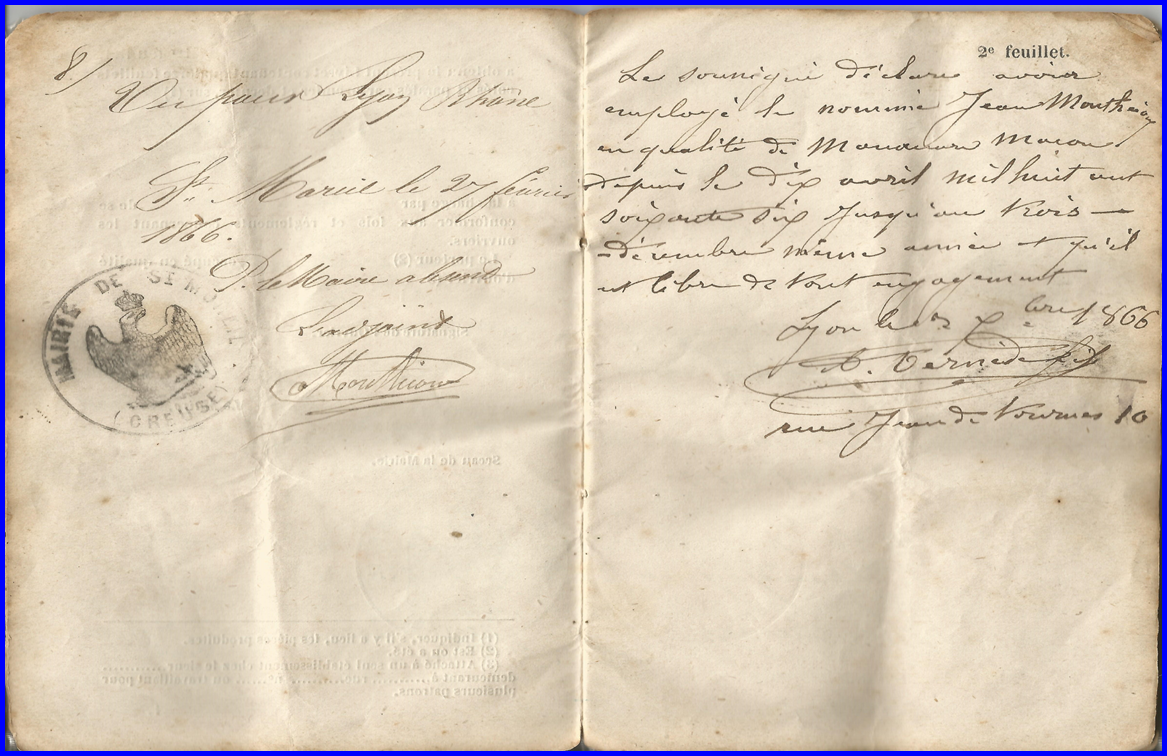 8./
Vu pour Lyon Rhône
St. Moreil le 27 février
1866.
P. le Maire absent
L'adjoint
Monthion
MAIRIE DE ST MOREIL
(CREUSE)
Sceau de la Mairie.
(1) Indiquer, s'il y a lieu, les pièces produites.
(2) Est ou a été.
(3) Attaché à un seul établissement chez le sieur
demeurant à rue nº ou travaillant pour
plusieurs patrons.
2e feuillet.
Le sousigné déclare avoir
employé le nommé Jean
en qualité de Manoeuvre Macon
depuis le dix avril mil huit cent
soixante six jusqu'au trois —
décembre même année + qu'il
est libre de tout engagement
Lyon le 3 Xbre 1866
rue Jean de Tournes 10